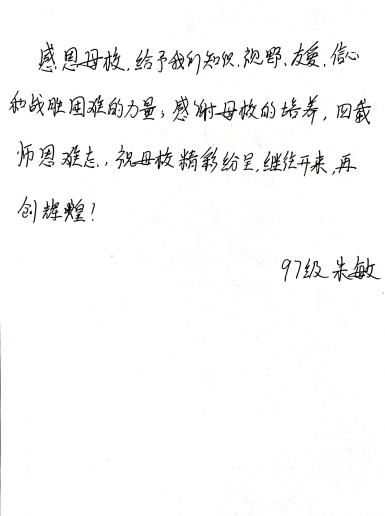 感恩母校,给予我们知识、视野、友爱、信心
和战胜困难的力量;感谢母校的培养,四载
师恩难忘,祝母校精彩纷呈,继往开来,再
创辉煌!
97级 朱敏